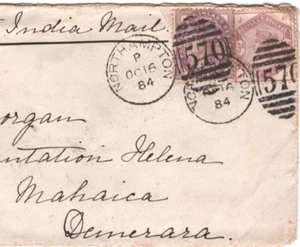 India Mail
NORTHAMPTON
P
OC 16
84
570
NORTHAMPTON
16
84
570
organ
ntation Helena
Mahaica
Demerara.